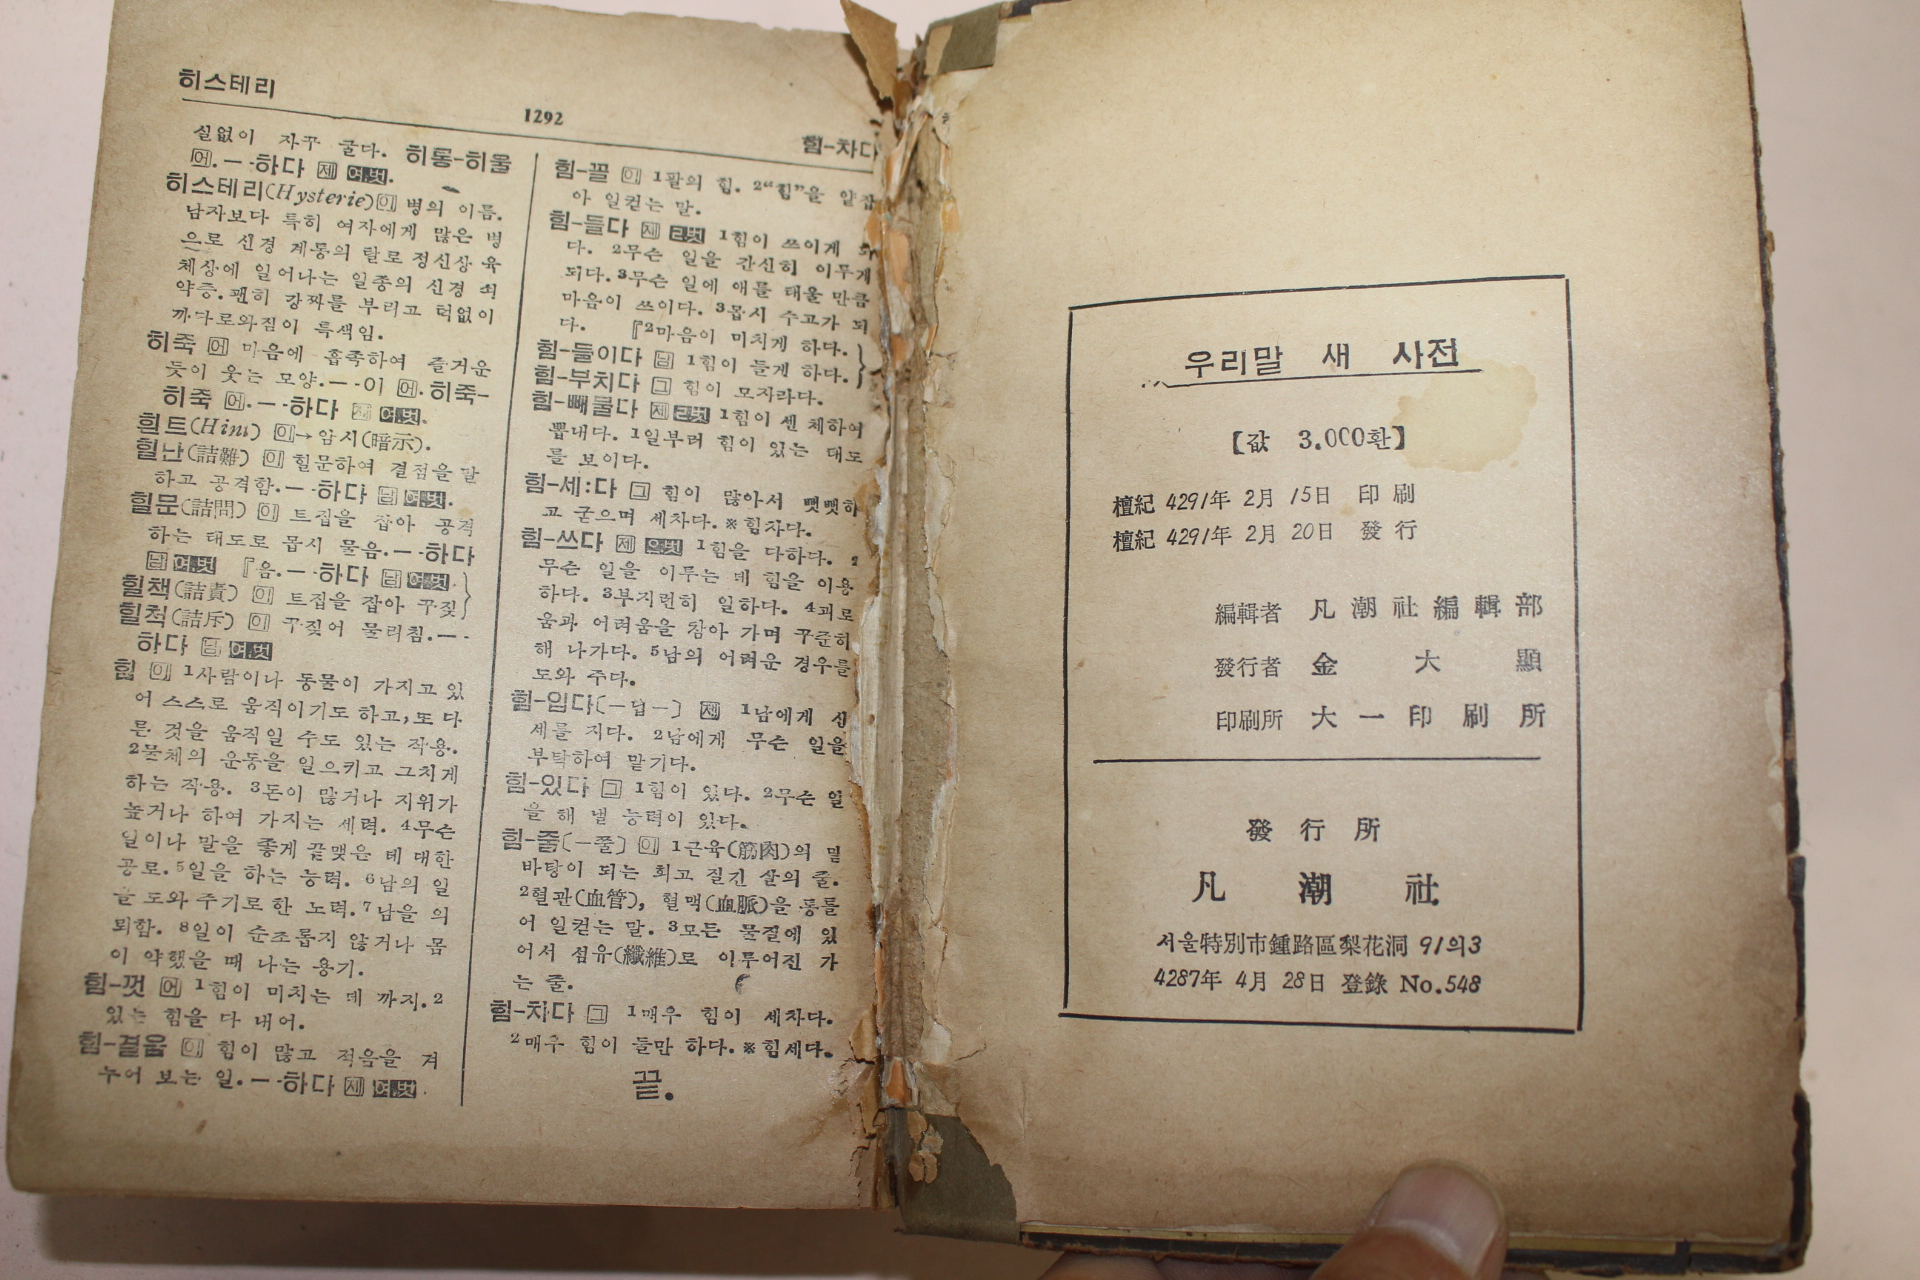 히스테리
1292
힘-차다
실없이 자꾸 굴다. 히롱-히울
어.—-하다 제 여.벗.
히스테리(Hysterie) 이 병의 이름.
남자보다 특히 여자에게 많은 병
으로 신경 계통의 탈로 정신상 육
체상에 일어나는 일종의 신경 쇠
약증. 괜히 강짜를 부리고 턱없이
까다로와짐이 특색임.
히죽 어 마음에 흡족하여 즐거운
듯이 웃는 모양.—-이 어. 히죽-
히죽 어.—-하다 제 여.벗.
힌트(Hint) 이→암시(暗示).
힐난(詰難) 이 힐문하여 결점을 말
하고 공격함.—-하다 남 여.벗.
힐문(詰問) 이 트집을 잡아 공격
하는 태도로 몹시 물음.—-하다
남 여.벗 『음.—-하다 남 여.벗.
힐책(詰責) 이 트집을 잡아 꾸짖
힐척(詰斥) 이 꾸짖어 물리침.—-
하다 남 여.벗
힘 이 1사람이나 동물이 가지고 있
어 스스로 움직이기도 하고, 또 다
른 것을 움직일 수도 있는 작용.
2물체의 운동을 일으키고 그치게
하는 작용. 3돈이 많거나 지위가
높거나 하여 가지는 세력. 4무슨
일이나 말을 좋게 끝맺은 데 대한
공로. 5일을 하는 능력. 6남의 일
을 도와 주기로 한 노력. 7남을 의
뢰함. 8일이 순조롭지 않거나 몸
이 약했을 때 나는 용기.
힘-껏 어 1힘이 미치는 데 까지. 2
있는 힘을 다 내어.
힘-겨움 이 힘이 많고 적음을 겨
누어 보는 일.—-하다 제 여.벗.
힘-꼴 이 1팔의 힘. 2“힘”을 얕잡
아 일컫는 말.
힘-들다 제 ㄹ벗 1힘이 쓰이게 되
다. 2무슨 일을 간신히 이루게
되다. 3무슨 일에 애를 태울 만큼
마음이 쓰이다. 3몹시 수고가 되
다. 『2마음이 미치게 하다.
힘-들이다 남 1힘이 들게 하다.
힘-부치다 그 힘이 모자라다.
힘-빼물다 제 ㄹ벗 1힘이 센 체하여
뽑내다. 1일부러 힘이 있는 태도
를 보이다.
힘-세:다 그 힘이 많아서 뻣뻣하
고 굳으며 세차다. ※힘차다.
힘-쓰다 제 으벗 1힘을 다하다. 2
무슨 일을 이루는 데 힘을 이용
하다. 3부지런히 일하다. 4괴로
움과 어려움을 참아 가며 꾸준히
해 나가다. 5남의 어려운 경우를
도와 주다.
힘-입다[—닙—] 제 1남에게 신
세를 지다. 2남에게 무슨 일을
부탁하여 맡기다.
힘-있다 그 1힘이 있다. 2무슨 일
을 해 낼 능력이 있다.
힘-줄[—쭐] 이 1근육(筋肉)의 밑
바탕이 되는 희고 질긴 살의 줄.
2혈관(血管), 혈맥(血脈)을 통틀
어 일컫는 말. 3모든 물질에 있
어서 섬유(纖維)로 이루어진 가
는 줄.
힘-차다 그 1매우 힘이 세차다.
2매우 힘이 들만 하다. ※힘세다.
끝.
우리말 새 사전
【값 3.000환】
檀紀 4291年 2月 15日 印刷
檀紀 4291年 2月 20日 發行
編輯者 凡潮社編輯部
發行者 金大顯
印刷所 大一印刷所
發行所
凡潮社
서울特別市鍾路區梨花洞 91의3
4287年 4月 28日 登錄 No.548